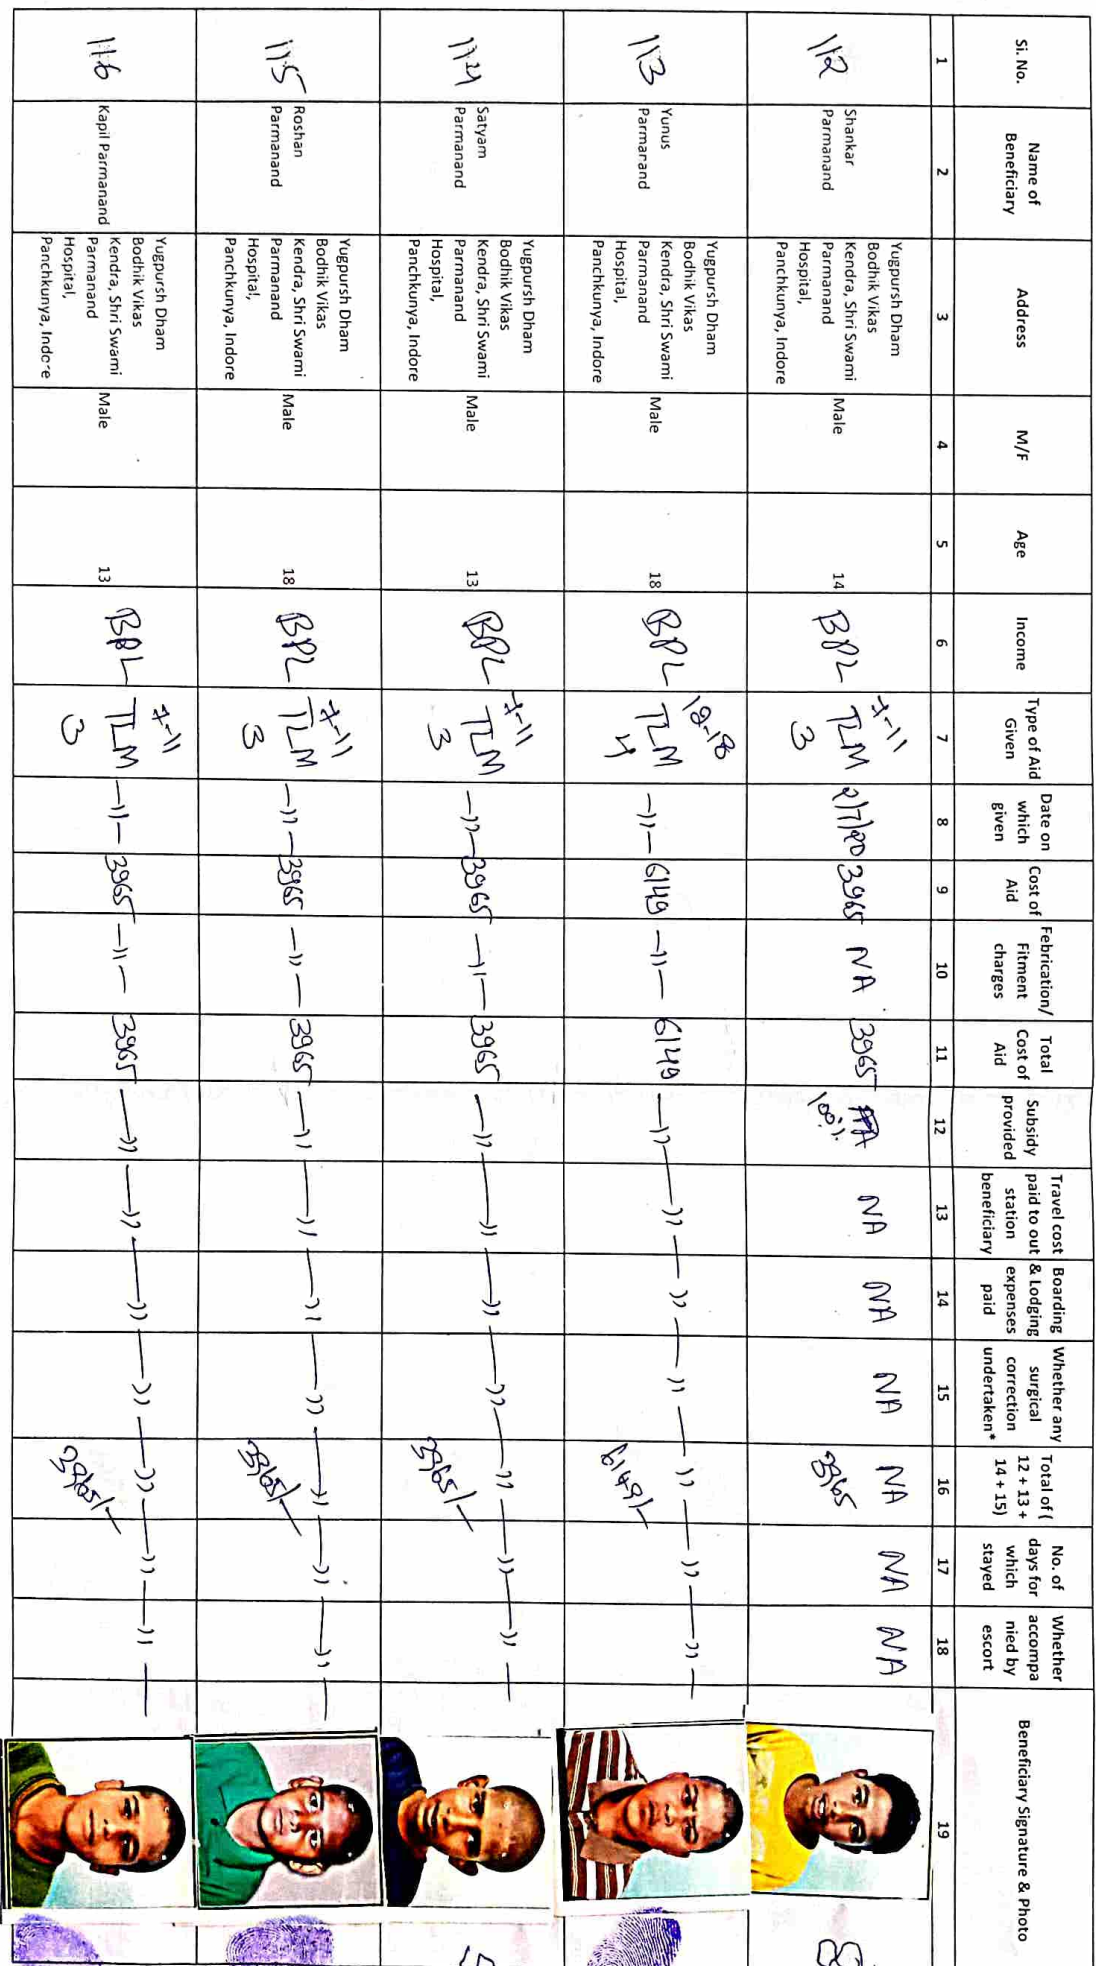 Si. No.
Name of
Beneficiary
Address
M/F
Age
Income
Type of Aid
Given
Date on
which
given
Cost of
Aid
Febrication/
Fitment
charges
Total
Cost of
Aid
Subsidy
provided
Travel cost
paid to out
station
beneficiary
Boarding
& Lodging
expenses
paid
Whether any
surgical
correction
undertaken*
Total of (
12 + 13 +
14 + 15)
No. of
days for
which
stayed
Whether
accompa
nied by
escort
Beneficiary Signature & Photo
1 2 3 4 5 6 7 8 9 10 11 12 13 14 15 16 17 18 19
112
Shankar
Parmanand
Yugpursh Dham
Bodhik Vikas
Kendra, Shri Swami
Parmanand
Hospital,
Panchkunya, Indore
Male
14
BPL
7-11
TLM
3
2/7/20
3965
NA
3965
100%
NA
NA
NA
NA
3965
NA
NA
113
Yunus
Parmanand
Yugpursh Dham
Bodhik Vikas
Kendra, Shri Swami
Parmanand
Hospital,
Panchkunya, Indore
Male
18
BPL
12-18
TLM
4
—〃—
6149
—〃—
6149
—〃—〃—〃—〃—〃—〃—〃—
6149/-
114
Satyam
Parmanand
Yugpursh Dham
Bodhik Vikas
Kendra, Shri Swami
Parmanand
Hospital,
Panchkunya, Indore
Male
13
BPL
7-11
TLM
3
—〃—
3965
—〃—
3965
—〃—〃—〃—〃—〃—〃—〃—
3965/-
115
Roshan
Parmanand
Yugpursh Dham
Bodhik Vikas
Kendra, Shri Swami
Parmanand
Hospital,
Panchkunya, Indore
Male
18
BPL
7-11
TLM
3
—〃—
3965
—〃—
3965
—〃—〃—〃—〃—〃—〃—〃—
3965/-
116
Kapil Parmanand
Yugpursh Dham
Bodhik Vikas
Kendra, Shri Swami
Parmanand
Hospital,
Panchkunya, Indore
Male
13
BPL
7-11
TLM
3
—〃—
3965
—〃—
3965
—〃—〃—〃—〃—〃—〃—〃—
3965/-